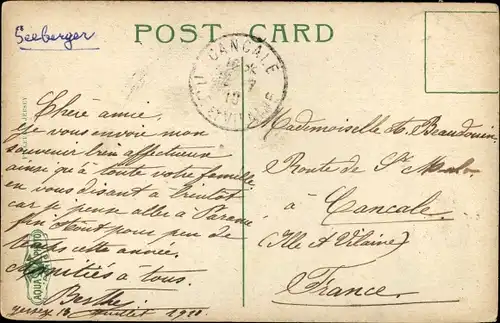 Seeberger
POST CARD
CANCALE
ILLE-ET-VILAINE
Chère amie.
Je vous envoie mon
souvenir bien affectueux
ainsi qu'à toute votre famille
en vous disant à bientôt
car je pense aller à Paramé
fin Août pour peu de
temps cette année.
Amitiés à tous.
Berthe
Jersey 18 Juillet 1910
Mademoiselle A. Beaudouin
Route de St Malo
à
Cancale
(Ille et Vilaine)
France